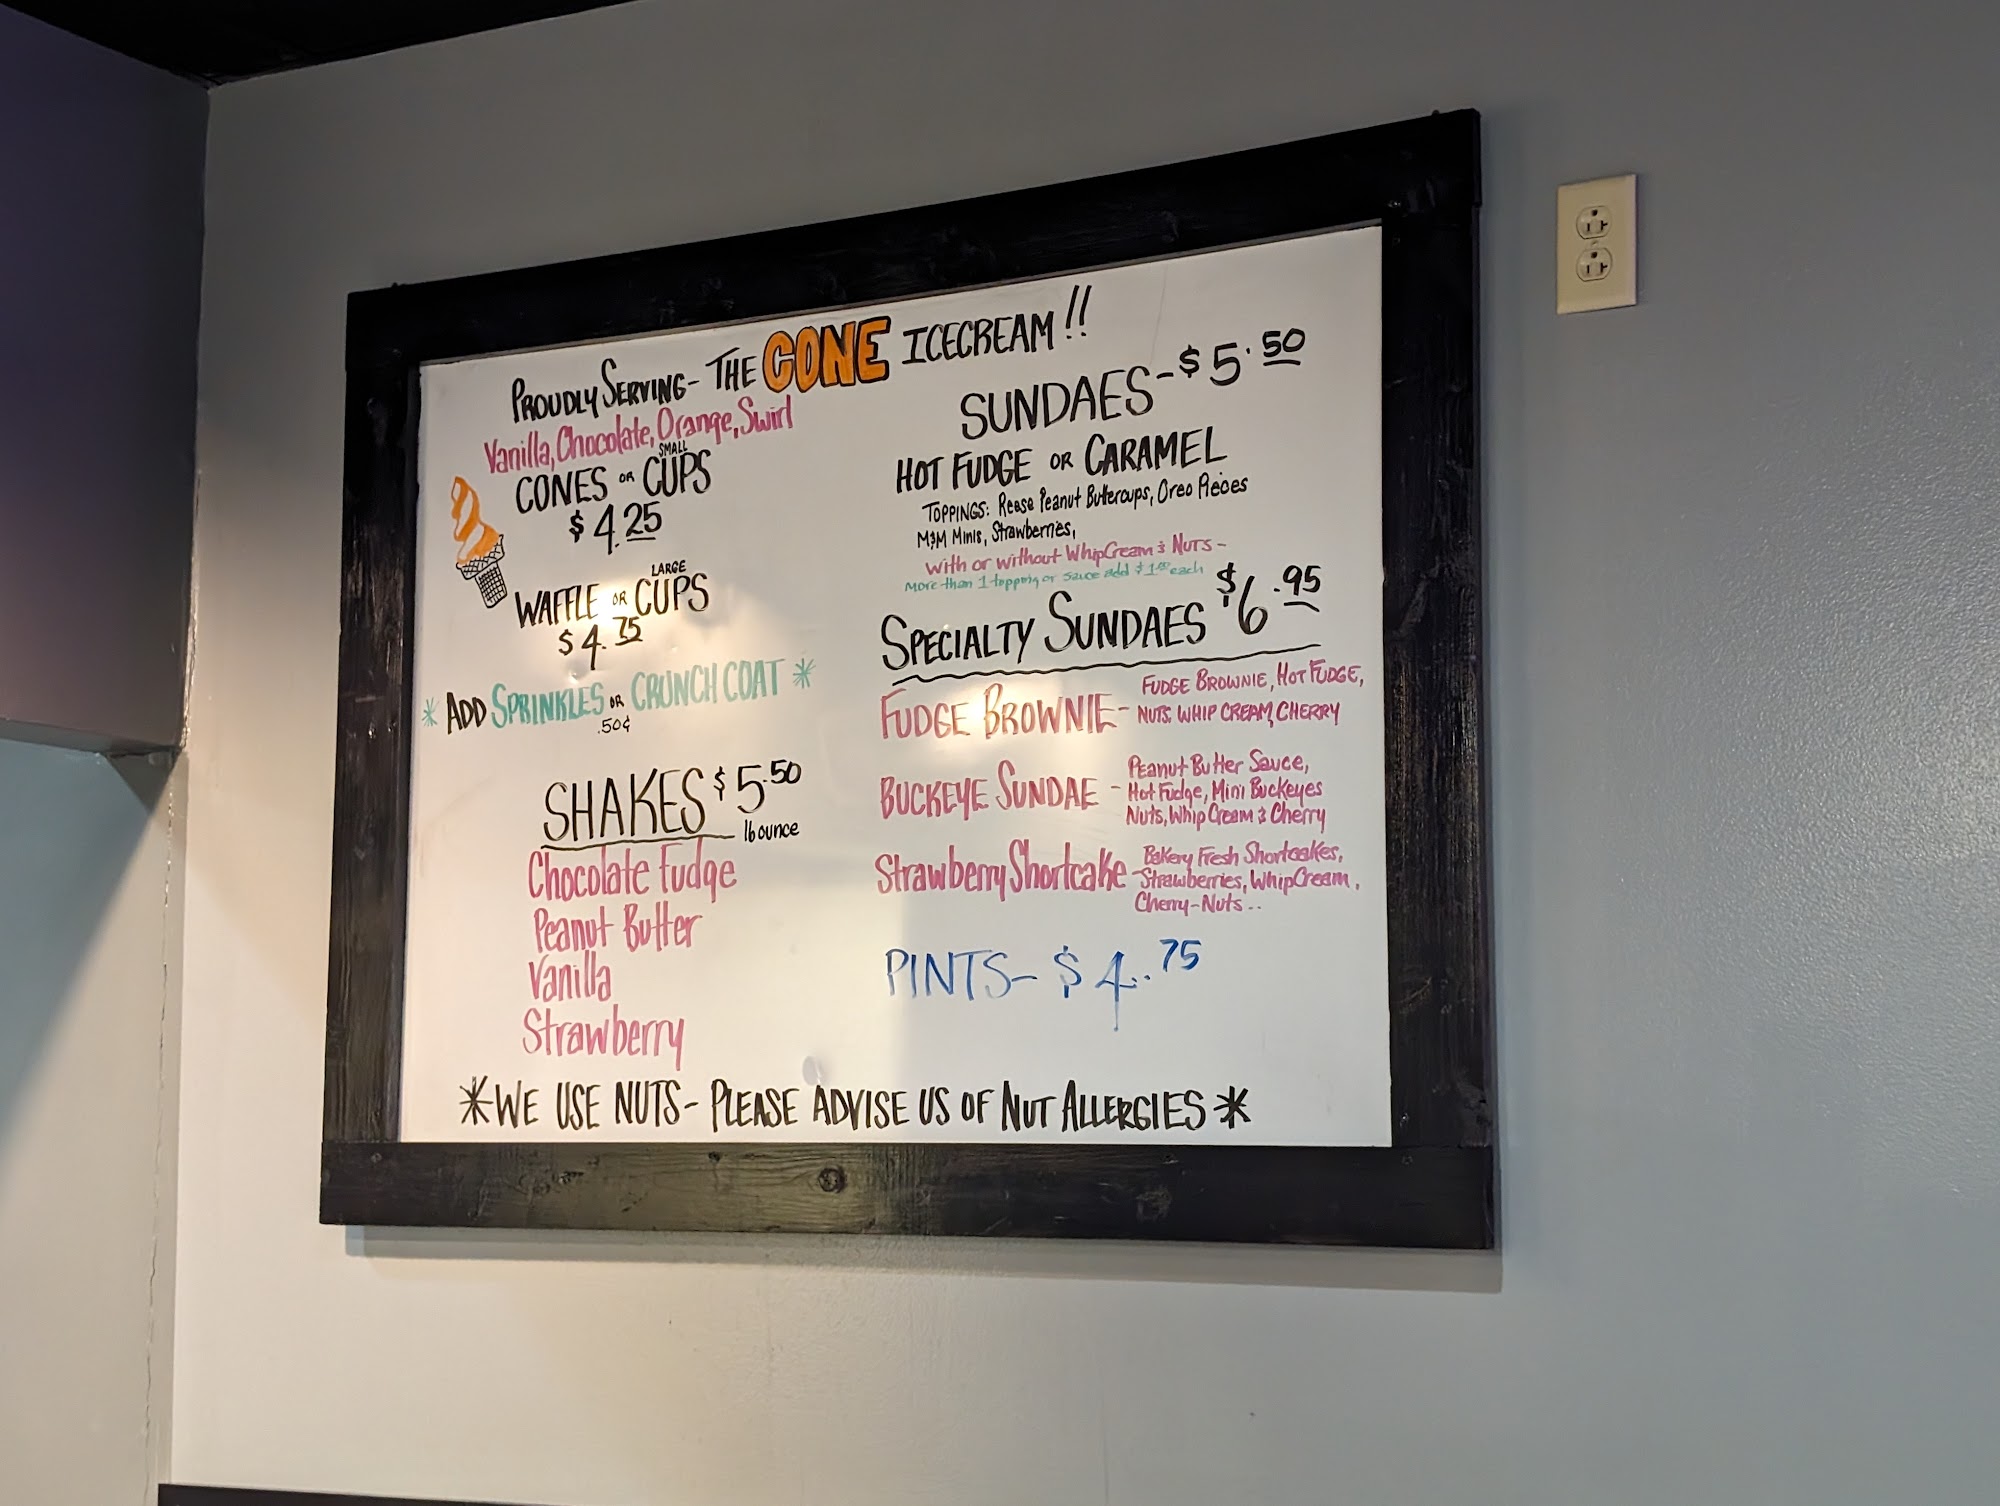 PROUDLY SERVING- THE CONE ICECREAM!!
Vanilla, Chocolate, Orange, Swirl
CONES OR SMALL CUPS
$4.25
WAFFLE OR LARGE CUPS
$4.75
* ADD SPRINKLES OR CRUNCH COAT *
.50¢
SHAKES $5.50
16 ounce
Chocolate Fudge
Peanut Butter
Vanilla
Strawberry
SUNDAES-$5.50
HOT FUDGE OR CARAMEL
TOPPINGS: Reese Peanut Buttercups, Oreo Pieces
M&M Minis, Strawberries,
With or without WhipCream & NUTS-
More than 1 topping or sauce add $1.00 each
SPECIALTY SUNDAES $6.95
FUDGE BROWNIE- FUDGE BROWNIE, HOT FUDGE,
NUTS, WHIP CREAM, CHERRY
BUCKEYE SUNDAE - Peanut Butter Sauce,
Hot Fudge, Mini Buckeyes
Nuts, Whip Cream & Cherry
Strawberry Shortcake - Bakery Fresh Shortcakes,
Strawberries, WhipCream,
Cherry-Nuts..
PINTS- $4..75
*WE USE NUTS- PLEASE ADVISE US OF NUT ALLERGIES*